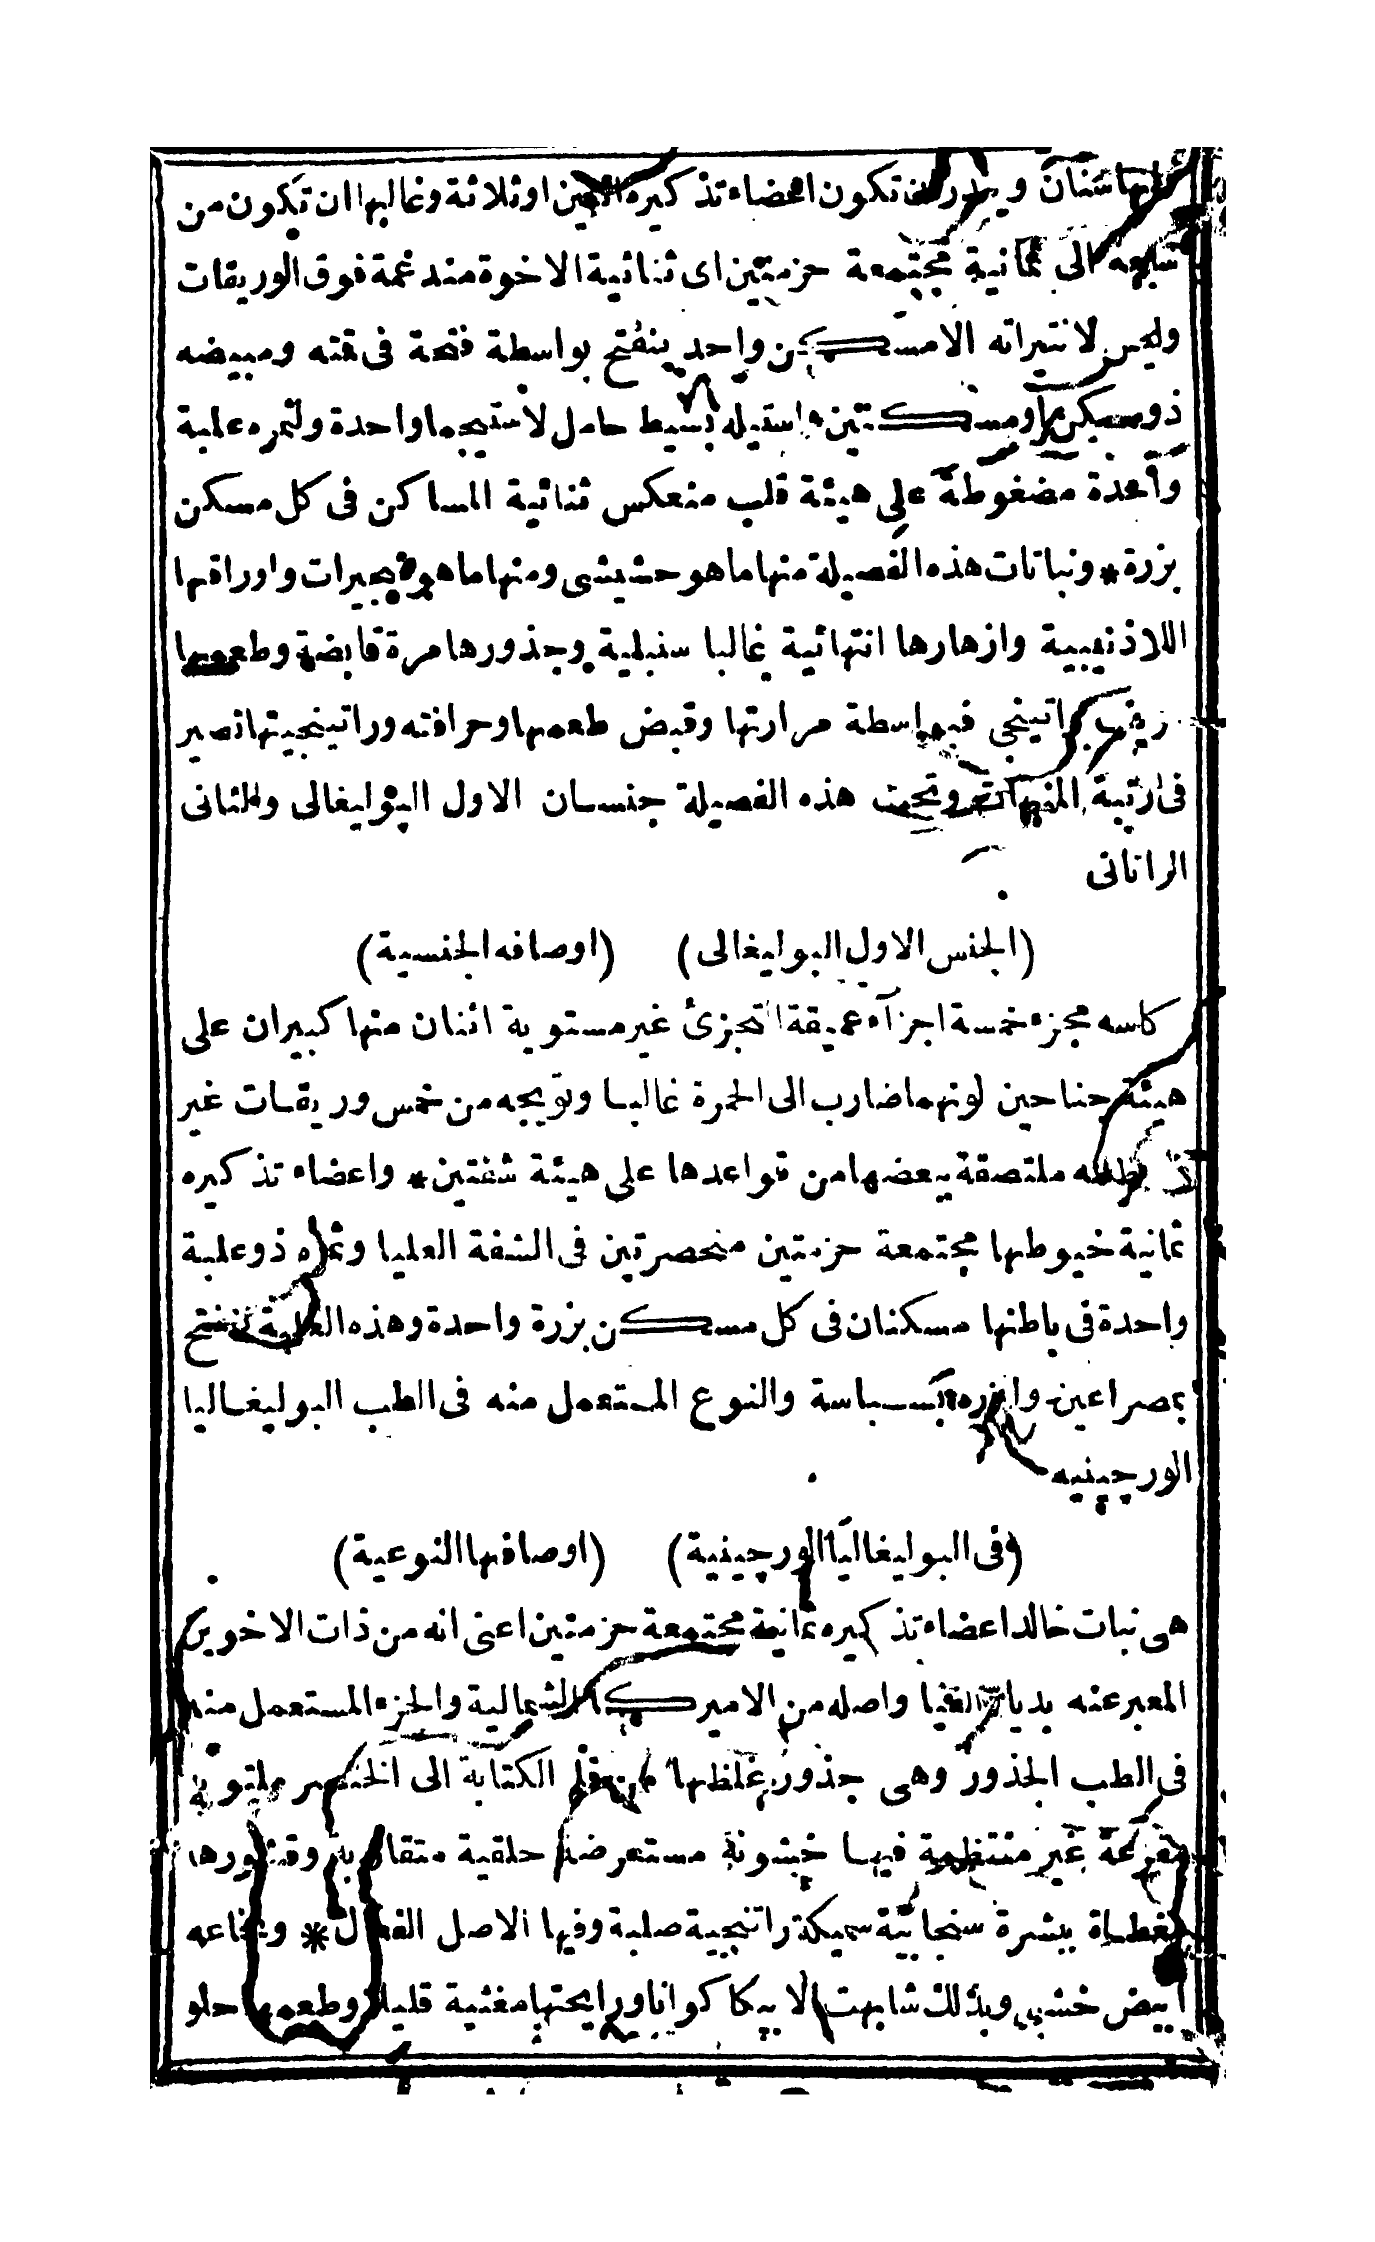 اسنان ويندر ان تكون اعضاء تذكيره اثنين او ثلاثة وغالبها ان تكون من
سبعة الى ثمانية مجتمعة حزمتين اى ثنائية الاخوة مندغمة فوق الوريقات
وليس لانتيراته الامسكن واحد ينفتح بواسطة فتحة فى قته ومبيضه
ذو مسكن او مسكنتين واستيله بسيط حامل لاستيجما واحدة وثمره علبة
واحدة مضغوطة على هيئة قلب منعكس ثنائية المساكن فى كل مسكن
بزرة * ونباتات هذه الفصيلة منها ما هو حشيشى ومنها ما هو شجيرات واوراقها
اللاذنيبية وازهارها انتهائية غالبا سنبلية وجذورها مرة قابضة وطعمها
راتينجى فبواسطة مرارتها وقبض طعمها وحرافته وراتينجيتها تصير
فى رتبة المنبهات وتحت هذه الفصيلة جنسان الاول البوليغالى والثانى
الراتانى
(الجنس الاول البوليغالى) (اوصافه الجنسية)
كاسه مجزء خمسة اجزآء عميقة التجزئ غير مستوية اثنان منها كبيران على
هيئة جناحين لونهما ضارب الى الحمرة غالبا وتويجه من خمس وريقات غير
ملتصقة ببعضها من قواعدها على هيئة شفتين * واعضاء تذكيره
ثمانية خيوطها مجتمعة حزمتين منحصرتين فى الشفة العليا وثمره ذو علبة
واحدة فى باطنها مسكنان فى كل مسكن بزرة واحدة وهذه العلبة تنفتح
بمصراعين وابزره بسباسة والنوع المستعمل منه فى الطب البوليغاليا
الورجينيه
(فى البوليغاليا الورجينية) (اوصافها النوعية)
هى نبات خالد اعضاء تذكيره ثمانية مجتمعة حزمتين اعنى انه من ذات الاخوين
المعبر عنه بدياد الفيا واصله من الاميركا الشمالية والجزء المستعمل منه
فى الطب الجذور وهى جذور غلظها من قلم الكتابة الى الخنصر ملتوية
متفرعة غير منتظمة فيها خشونة مستعرضة حلقية متقاربة وقشورها
مغطاة ببشرة سنجابية سميكة راتنجية صلبة وفيها الاصل الفعال * ونخاعه
ابيض خشبى وبذلك شابهت الابيكاكوانا ورايحتها مغثية قليلا وطعمها حلو